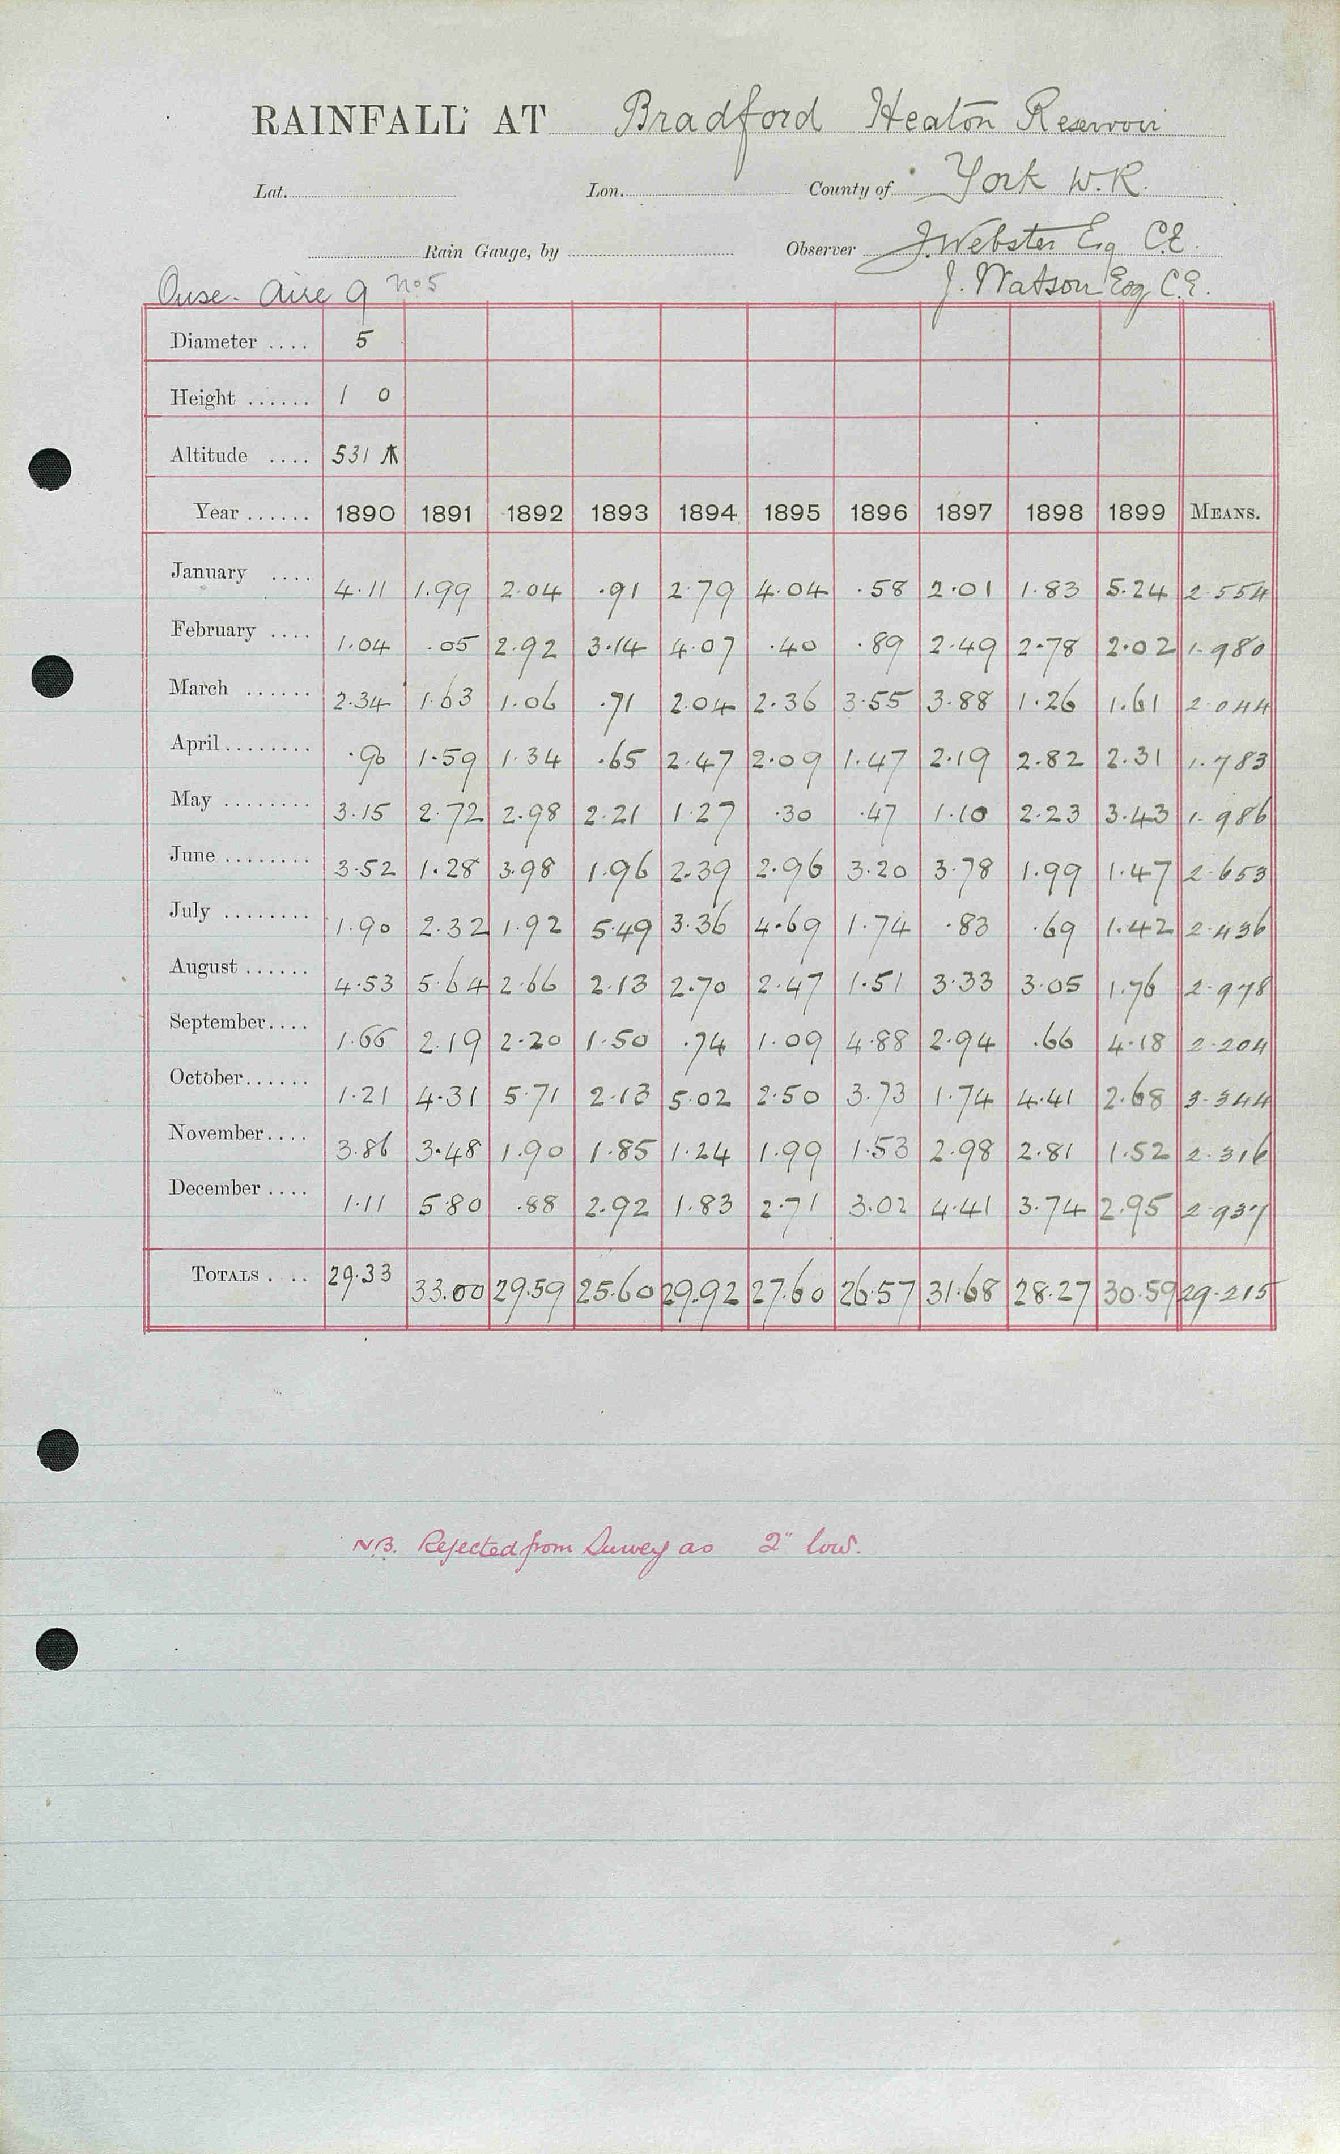 RAINFALL AT Bradford Heaton Reservoir
Lat. Lon. County of York W.R.
Rain Gauge, by Observer J. Webster Esq C.E.
Ouse. Aire 9 No 5 J. Watson Esq C.E.
Diameter .... 5
Height ...... 1 0
Altitude .... 531
Year ...... 1890 1891 1892 1893 1894 1895 1896 1897 1898 1899 MEANS.
January .... 4.11 1.99 2.04 .91 2.79 4.04 .58 2.01 1.83 5.24 2.554
February .... 1.04 .05 2.92 3.14 4.07 .40 .89 2.49 2.78 2.02 1.980
March ...... 2.34 1.63 1.06 .71 2.04 2.36 3.55 3.88 1.26 1.61 2.044
April ........ .90 1.59 1.34 .65 2.47 2.09 1.47 2.19 2.82 2.31 1.783
May ........ 3.15 2.72 2.98 2.21 1.27 .30 .47 1.10 2.23 3.43 1.986
June ........ 3.52 1.28 3.98 1.96 2.39 2.96 3.20 3.78 1.99 1.47 2.653
July ........ 1.90 2.32 1.92 5.49 3.36 4.69 1.74 .83 .69 1.42 2.436
August ...... 4.53 5.64 2.66 2.13 2.70 2.47 1.51 3.33 3.05 1.76 2.978
September.... 1.66 2.19 2.20 1.50 .74 1.09 4.88 2.94 .66 4.18 2.204
October...... 1.21 4.31 5.71 2.13 5.02 2.50 3.73 1.74 4.41 2.68 3.344
November.... 3.86 3.48 1.90 1.85 1.24 1.99 1.53 2.98 2.81 1.52 2.316
December .... 1.11 5.80 .88 2.92 1.83 2.71 3.02 4.41 3.74 2.95 2.937
TOTALS .... 29.33 33.00 29.59 25.60 29.92 27.60 26.57 31.68 28.27 30.59 29.215
N.B. Rejected from Survey as 2" low.